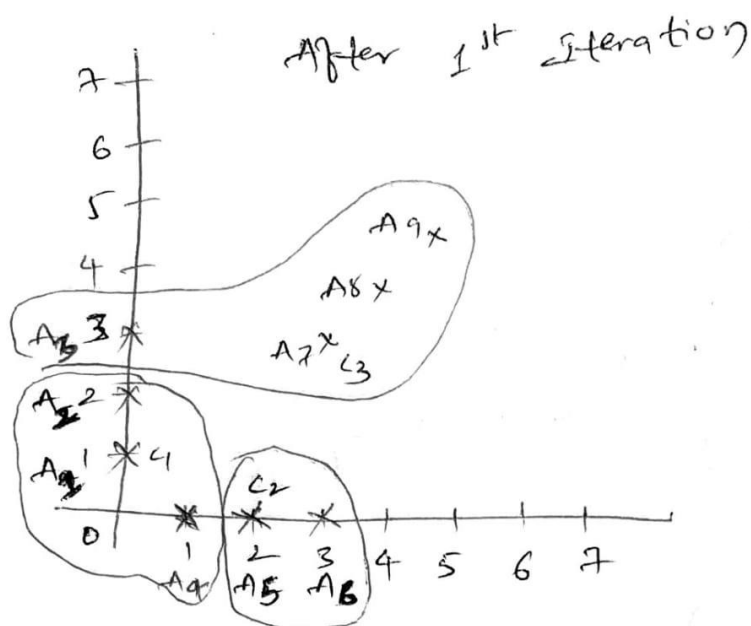 After 1st Iteration
7
6
5
A9x
4
A8x
A3 3
A7x C3
A2 2
A1 1 C1
C2
0
1 2 3 4 5 6 7
A4 A5 A6